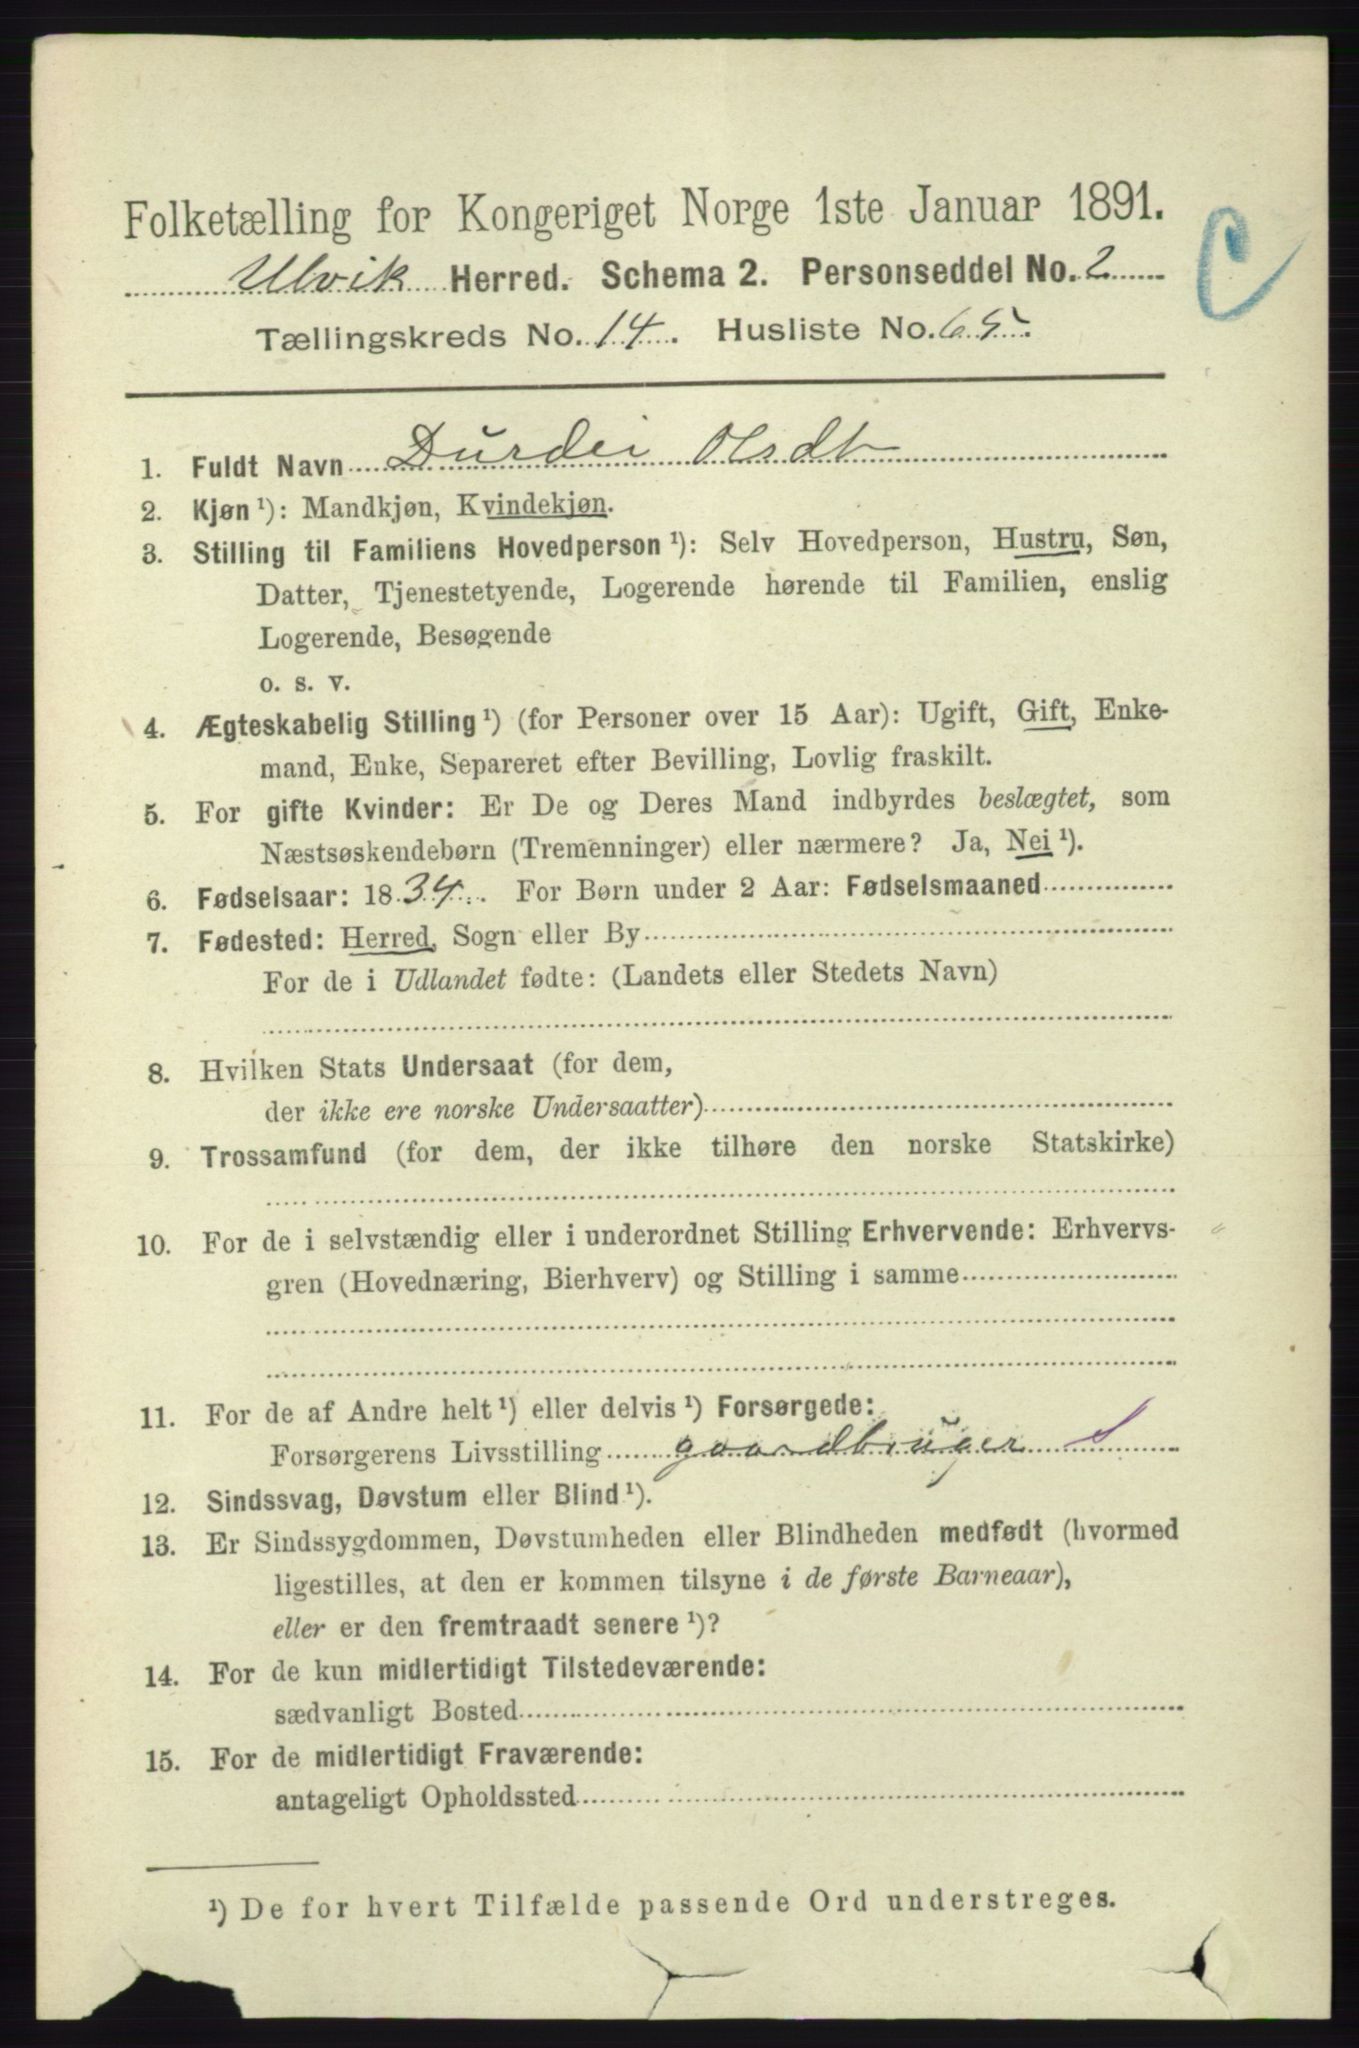 Folketælling for Kongeriget Norge 1ste Januar 1891.
Ulvik Herred. Schema 2. Personseddel No. 2
Tællingskreds No. 14. Husliste No. 65.
C
1. Fuldt Navn Durdei Olsdt
2. Kjøn ¹): Mandkjøn, Kvindekjøn.
3. Stilling til Familiens Hovedperson ¹): Selv Hovedperson, Hustru, Søn,
Datter, Tjenestetyende, Logerende hørende til Familien, enslig
Logerende, Besøgende
o. s. v.
4. Ægteskabelig Stilling ¹) (for Personer over 15 Aar): Ugift, Gift, Enke-
mand, Enke, Separeret efter Bevilling, Lovlig fraskilt.
5. For gifte Kvinder: Er De og Deres Mand indbyrdes beslægtet, som
Næstsøskendebørn (Tremenninger) eller nærmere? Ja, Nei ¹).
6. Fødselsaar: 1834. For Børn under 2 Aar: Fødselsmaaned
7. Fødested: Herred, Sogn eller By
For de i Udlandet fødte: (Landets eller Stedets Navn)
8. Hvilken Stats Undersaat (for dem,
der ikke ere norske Undersaatter)
9. Trossamfund (for dem, der ikke tilhøre den norske Statskirke)
10. For de i selvstændig eller i underordnet Stilling Erhvervende: Erhvervs-
gren (Hovednæring, Bierhverv) og Stilling i samme
11. For de af Andre helt ¹) eller delvis ¹) Forsørgede:
Forsørgerens Livsstilling gaardbruger S
12. Sindssvag, Døvstum eller Blind ¹).
13. Er Sindssygdommen, Døvstumheden eller Blindheden medfødt (hvormed
ligestilles, at den er kommen tilsyne i de første Barneaar),
eller er den fremtraadt senere ¹)?
14. For de kun midlertidigt Tilstedeværende:
sædvanligt Bosted
15. For de midlertidigt Fraværende:
antageligt Opholdssted
¹) De for hvert Tilfælde passende Ord understreges.